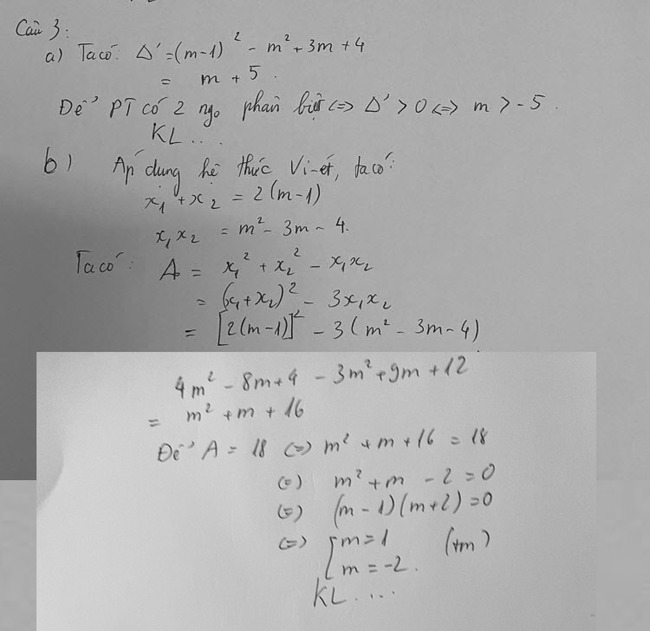 Câu 3:
a) Ta có: Δ' = (m-1)² - m² + 3m + 4
= m + 5.
Để PT có 2 ngo phân biệt <=> Δ' > 0 <=> m > -5.
KL...
b) Áp dụng hệ thức Vi-ét, ta có:
x₁ + x₂ = 2(m-1)
x₁x₂ = m² - 3m - 4.
Ta có: A = x₁² + x₂² - x₁x₂
= (x₁+x₂)² - 3x₁x₂
= [2(m-1)]² - 3(m² - 3m - 4)
4m² - 8m + 4 - 3m² + 9m + 12
= m² + m + 16
Để A = 18 <=> m² + m + 16 = 18
<=> m² + m - 2 = 0
<=> (m-1)(m+2) = 0
<=> [m = 1 (tm)
m = -2.
KL....